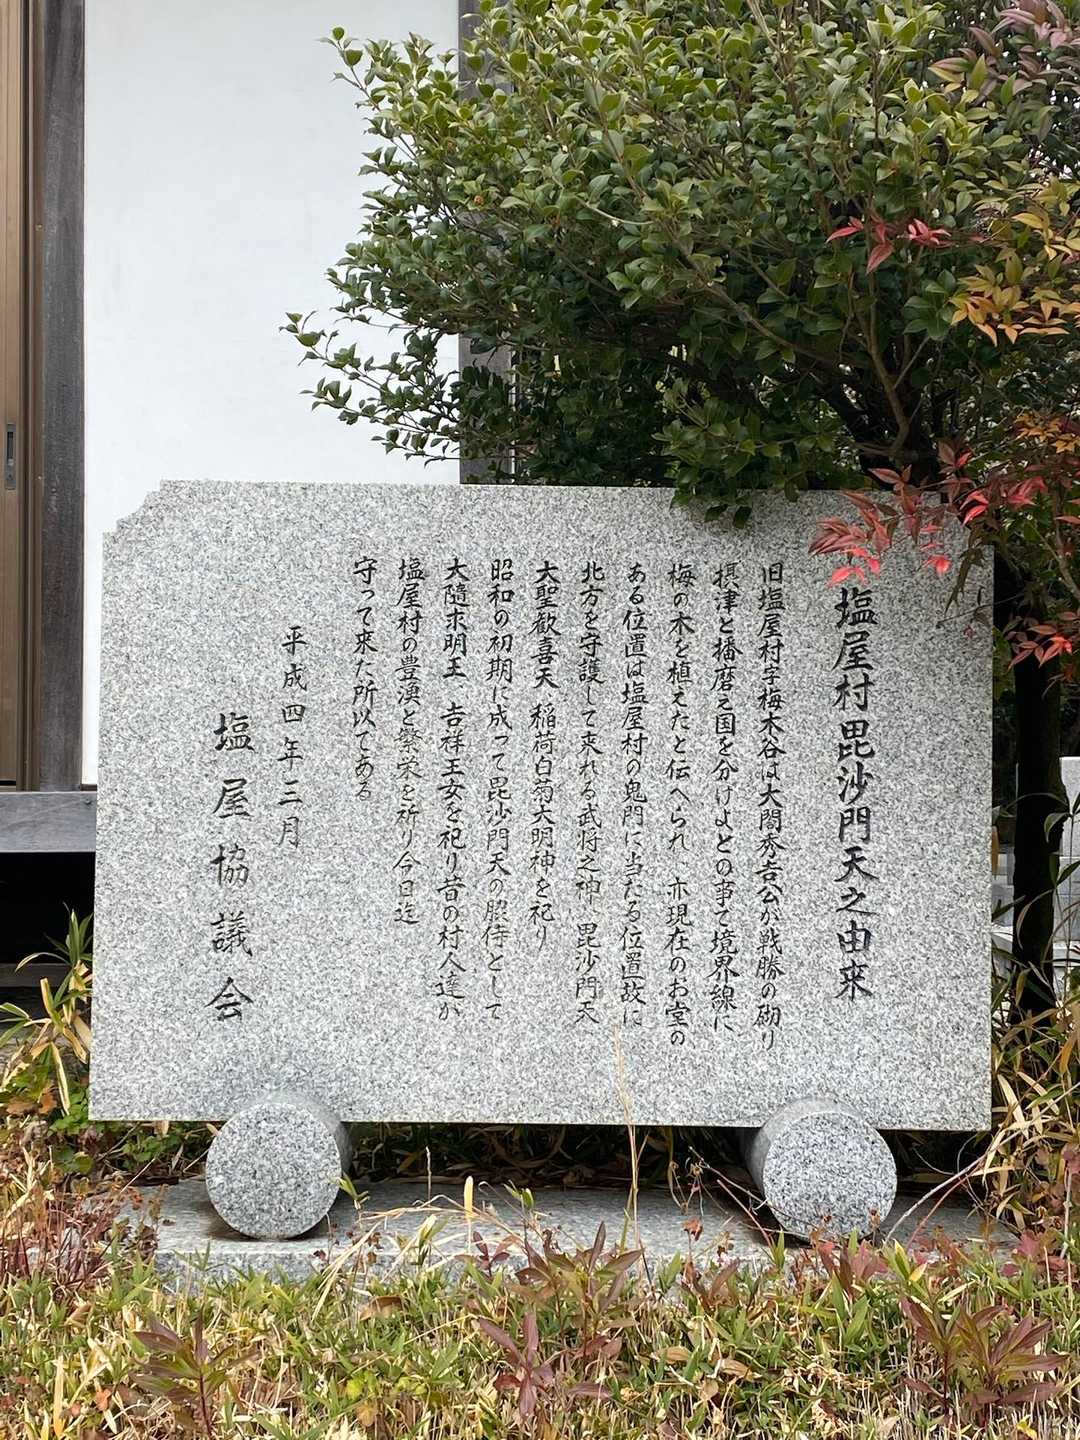 塩屋村毘沙門天之由来
旧塩屋村字梅木谷は大閤秀吉公が戦勝の砌り
摂津と播磨之国を分けよとの事で境界線に
梅の木を植えたと伝へられ、亦現在のお堂の
ある位置は塩屋村の鬼門に当たる位置故に
北方を守護して来れる武将之神、毘沙門天
大聖歓喜天、稲荷白菊大明神を祀り
昭和の初期に成って毘沙門天の脇侍として
大隨求明王、吉祥王女を祀り昔の村人達が
塩屋村の豊漁と繁栄を祈り今日迄
守って来た所以である
平成四年三月
塩屋協議会